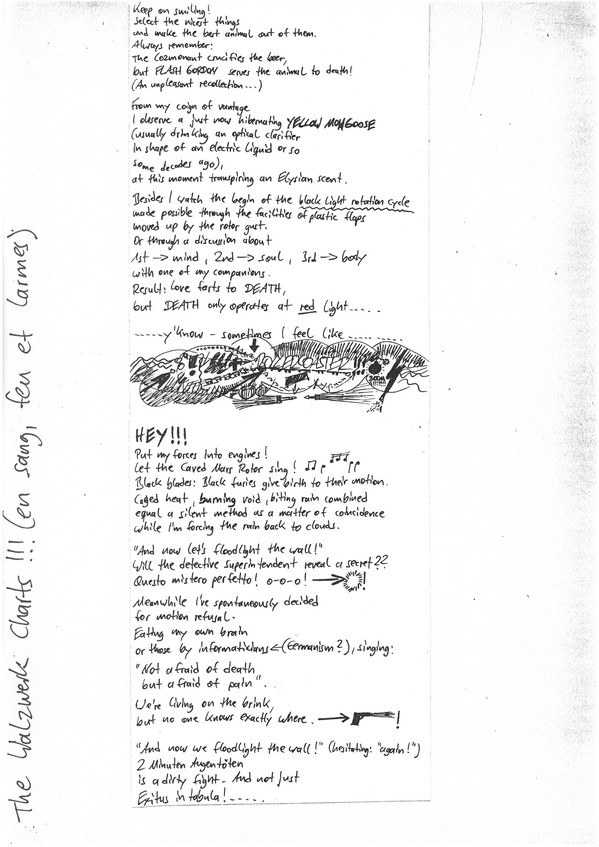 Keep on smiling!
Select the nicest things
and make the best animal out of them.
Always remember:
The Cozmonant crucifies the beer,
but FLASH GORDON serves the animal to death!
(An unpleasant recollection...)
From my coign of vantage
I observe a just now hibernating YELLOW MONGOOSE
(usually drinking an optical clarifier
in shape of an electric liquid or so
some decades ago),
at this moment transpiring an Elysian scent.
Besides I watch the begin of the black light rotation cycle
made possible through the facilities of plastic flaps
moved up by the rotor gust.
Or through a discussion about
1st -> mind, 2nd -> soul, 3rd -> body
with one of my companions.
Result: Love farts to DEATH,
but DEATH only operates at red light.....
.....y'know - sometimes I feel like..........
HEY!!!
Put my forces into engines!
Let the Caved Mass Rotor sing!
Black blades: Black furies give birth to their motion.
Caged heat, burning void, biting rain combined
equal a silent method as a matter of coincidence
while I'm forcing the rain back to clouds.
"And now let's floodlight the wall!"
Will the defective superintendent reveal a secret??
Questo mistero perfetto! o-o-o! !
Meanwhile I've spontaneously decided
for motion refusal.
Eating my own brain
or those by informaticians <- (Germanism?), singing:
"Not afraid of death
but afraid of pain".
We're living on the brink,
but no one knows exactly where. !
"And now we floodlight the wall!" (hesitating: "again!")
2 Minuten Augentöten
is a dirty fight - And not just
Exitus in tabula!.....
The Walzwerk Charts!!! (en sang, feu et larmes)